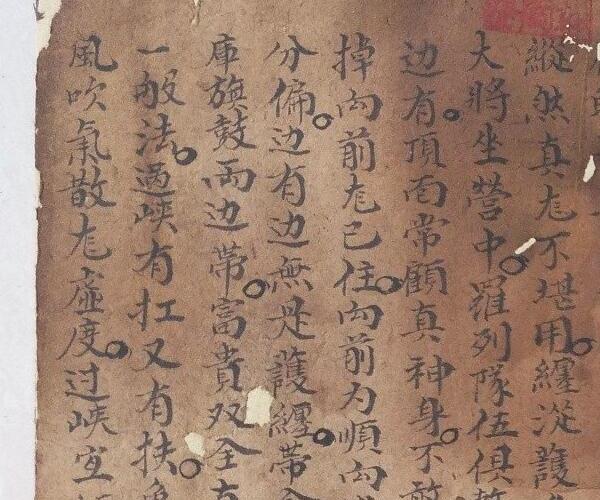 縱然真龙不堪用○纏從護
大將坐營中○羅列隊伍俱
边有○頂面常顧真神身○不
掉向前龙已住○向前为順向
分偏○边有边無是護纏○帶
庫旗鼓両边帶○富貴双全
一般法○過峡有扛又有扶○
風吹氣散龙虛度○过峡宜